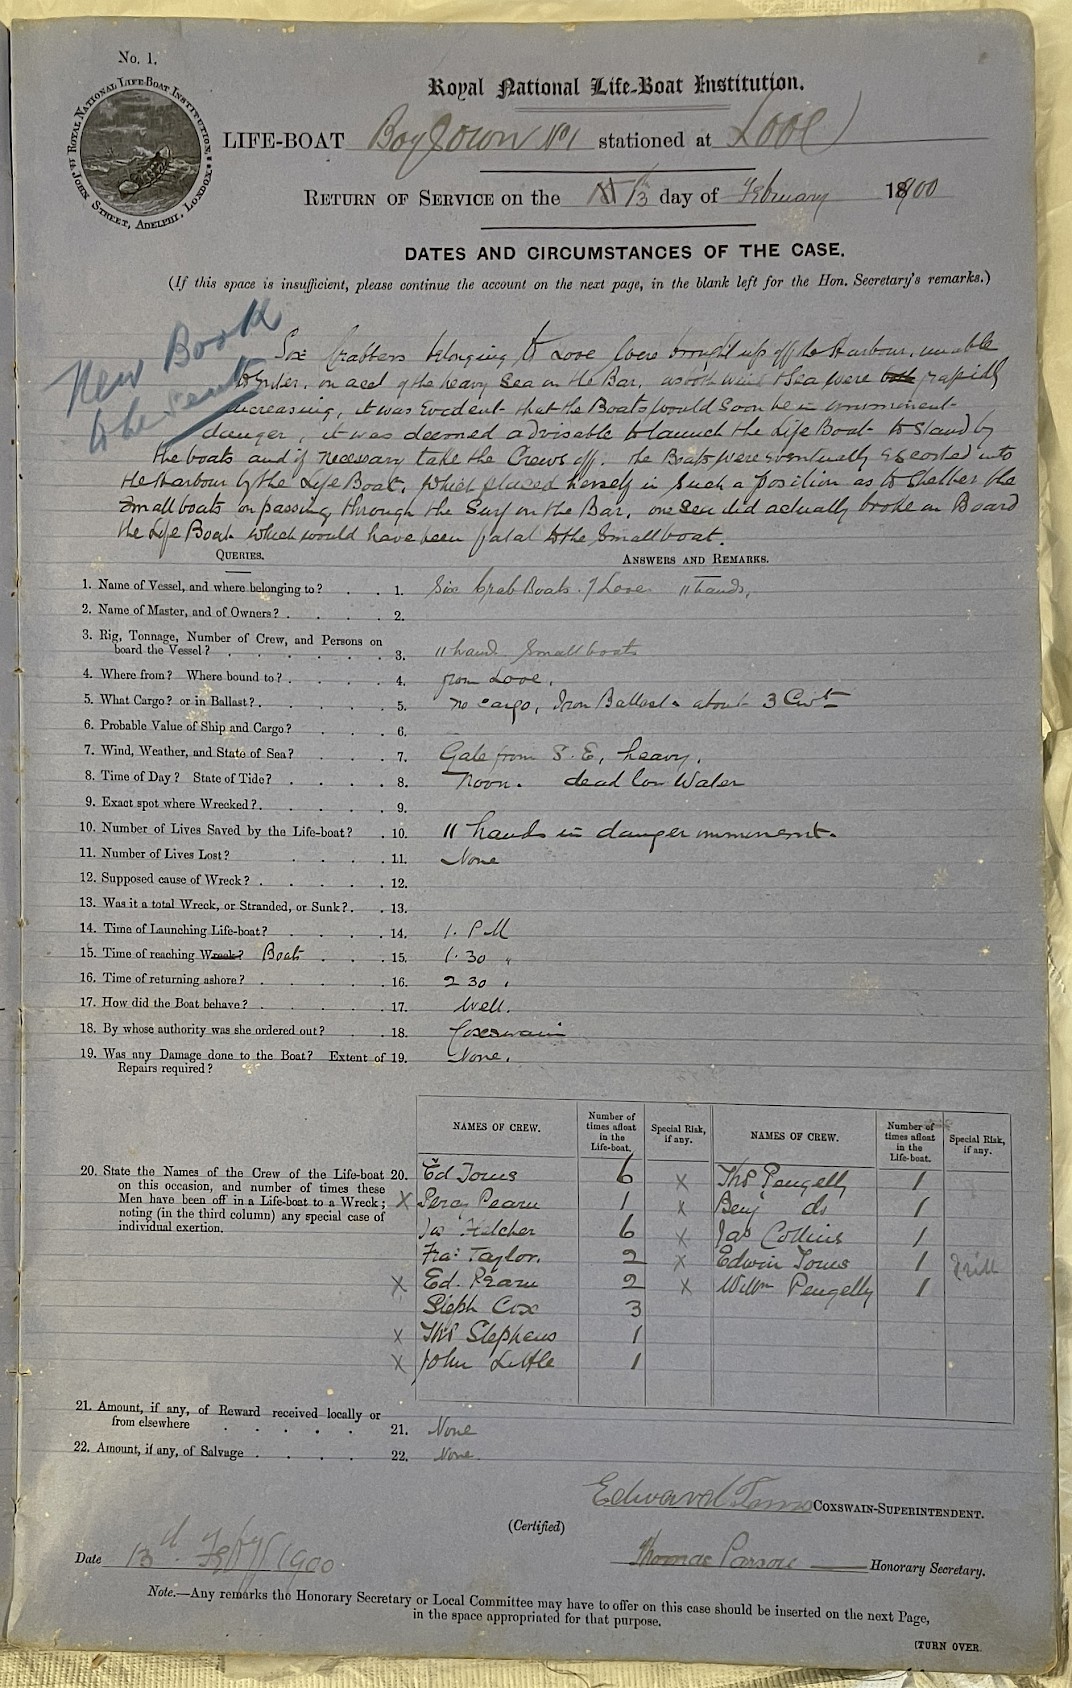 No. 1.
ROYAL NATIONAL LIFE-BOAT INSTITUTION, JOHN STREET, ADELPHI, LONDON.
Royal National Life-Boat Institution.
LIFE-BOAT Boys Own No 1 stationed at Looe
RETURN OF SERVICE on the 13 day of February 1900
DATES AND CIRCUMSTANCES OF THE CASE.
(If this space is insufficient, please continue the account on the next page, in the blank left for the Hon. Secretary's remarks.)
New Book
to be sent
Six Crabbers belonging to Looe were brought up off the Harbour, unable
to Enter, on acct of the heavy Sea on the Bar, as both wind & Sea were rapidly
increasing, it was Evident that the Boats would soon be in imminent
danger, it was deemed advisable to launch the Life Boat to Stand by
the boats and if necessary take the Crews off. the Boats were eventually escorted into
the Harbour by the Life Boat, which placed herself in such a position as to shelter the
small boats on passing through the Surf on the Bar, one sea did actually broke on Board
the Life Boat which would have been fatal to the Small boat.
QUERIES.
ANSWERS AND REMARKS.
1. Name of Vessel, and where belonging to? 1. Six Crab Boats of Looe 11 hands,
2. Name of Master, and of Owners? 2.
3. Rig, Tonnage, Number of Crew, and Persons on
board the Vessel? 3. 11 hands Small boats
4. Where from? Where bound to? 4. from Looe.
5. What Cargo? or in Ballast? 5. no cargo, Iron Ballast about 3 Cwt
6. Probable Value of Ship and Cargo? 6.
7. Wind, Weather, and State of Sea? 7. Gale from S. E, heavy.
8. Time of Day? State of Tide? 8. Noon. dead low Water
9. Exact spot where Wrecked? 9.
10. Number of Lives Saved by the Life-boat? 10. 11 hands in danger imminent.
11. Number of Lives Lost? 11. None
12. Supposed cause of Wreck? 12.
13. Was it a total Wreck, or Stranded, or Sunk? 13.
14. Time of Launching Life-boat? 14. 1. PM
15. Time of reaching Wreck? Boats 15. 1.30 "
16. Time of returning ashore? 16. 2 30 "
17. How did the Boat behave? 17. Well.
18. By whose authority was she ordered out? 18. Coxswain
19. Was any Damage done to the Boat? Extent of 19. None.
Repairs required?
NAMES OF CREW. Number of times afloat in the Life-boat. Special Risk, if any. NAMES OF CREW. Number of times afloat in the Life-boat. Special Risk, if any.
20. State the Names of the Crew of the Life-boat 20.
on this occasion, and number of times these
Men have been off in a Life-boat to a Wreck;
noting (in the third column) any special case of
individual exertion.
Ed Toms 6 x Thos Pengelly 1
x Percy Pearn 1 x Benj do 1
Jas Fletcher 6 x Jas Collins 1
Fras Taylor. 2 x Edwin Toms 1 Drill
x Ed. Pearn 2 x Willm Pengelly 1
Steph Cox 3
x Thos Stephens 1
x John Little 1
21. Amount, if any, of Reward received locally or
from elsewhere 21. None
22. Amount, if any, of Salvage 22. None.
Edward Toms COXSWAIN-SUPERINTENDENT.
(Certified)
Date 13th Feby 1900 Thomas Parson Honorary Secretary.
Note.—Any remarks the Honorary Secretary or Local Committee may have to offer on this case should be inserted on the next Page,
in the space appropriated for that purpose.
(TURN OVER.